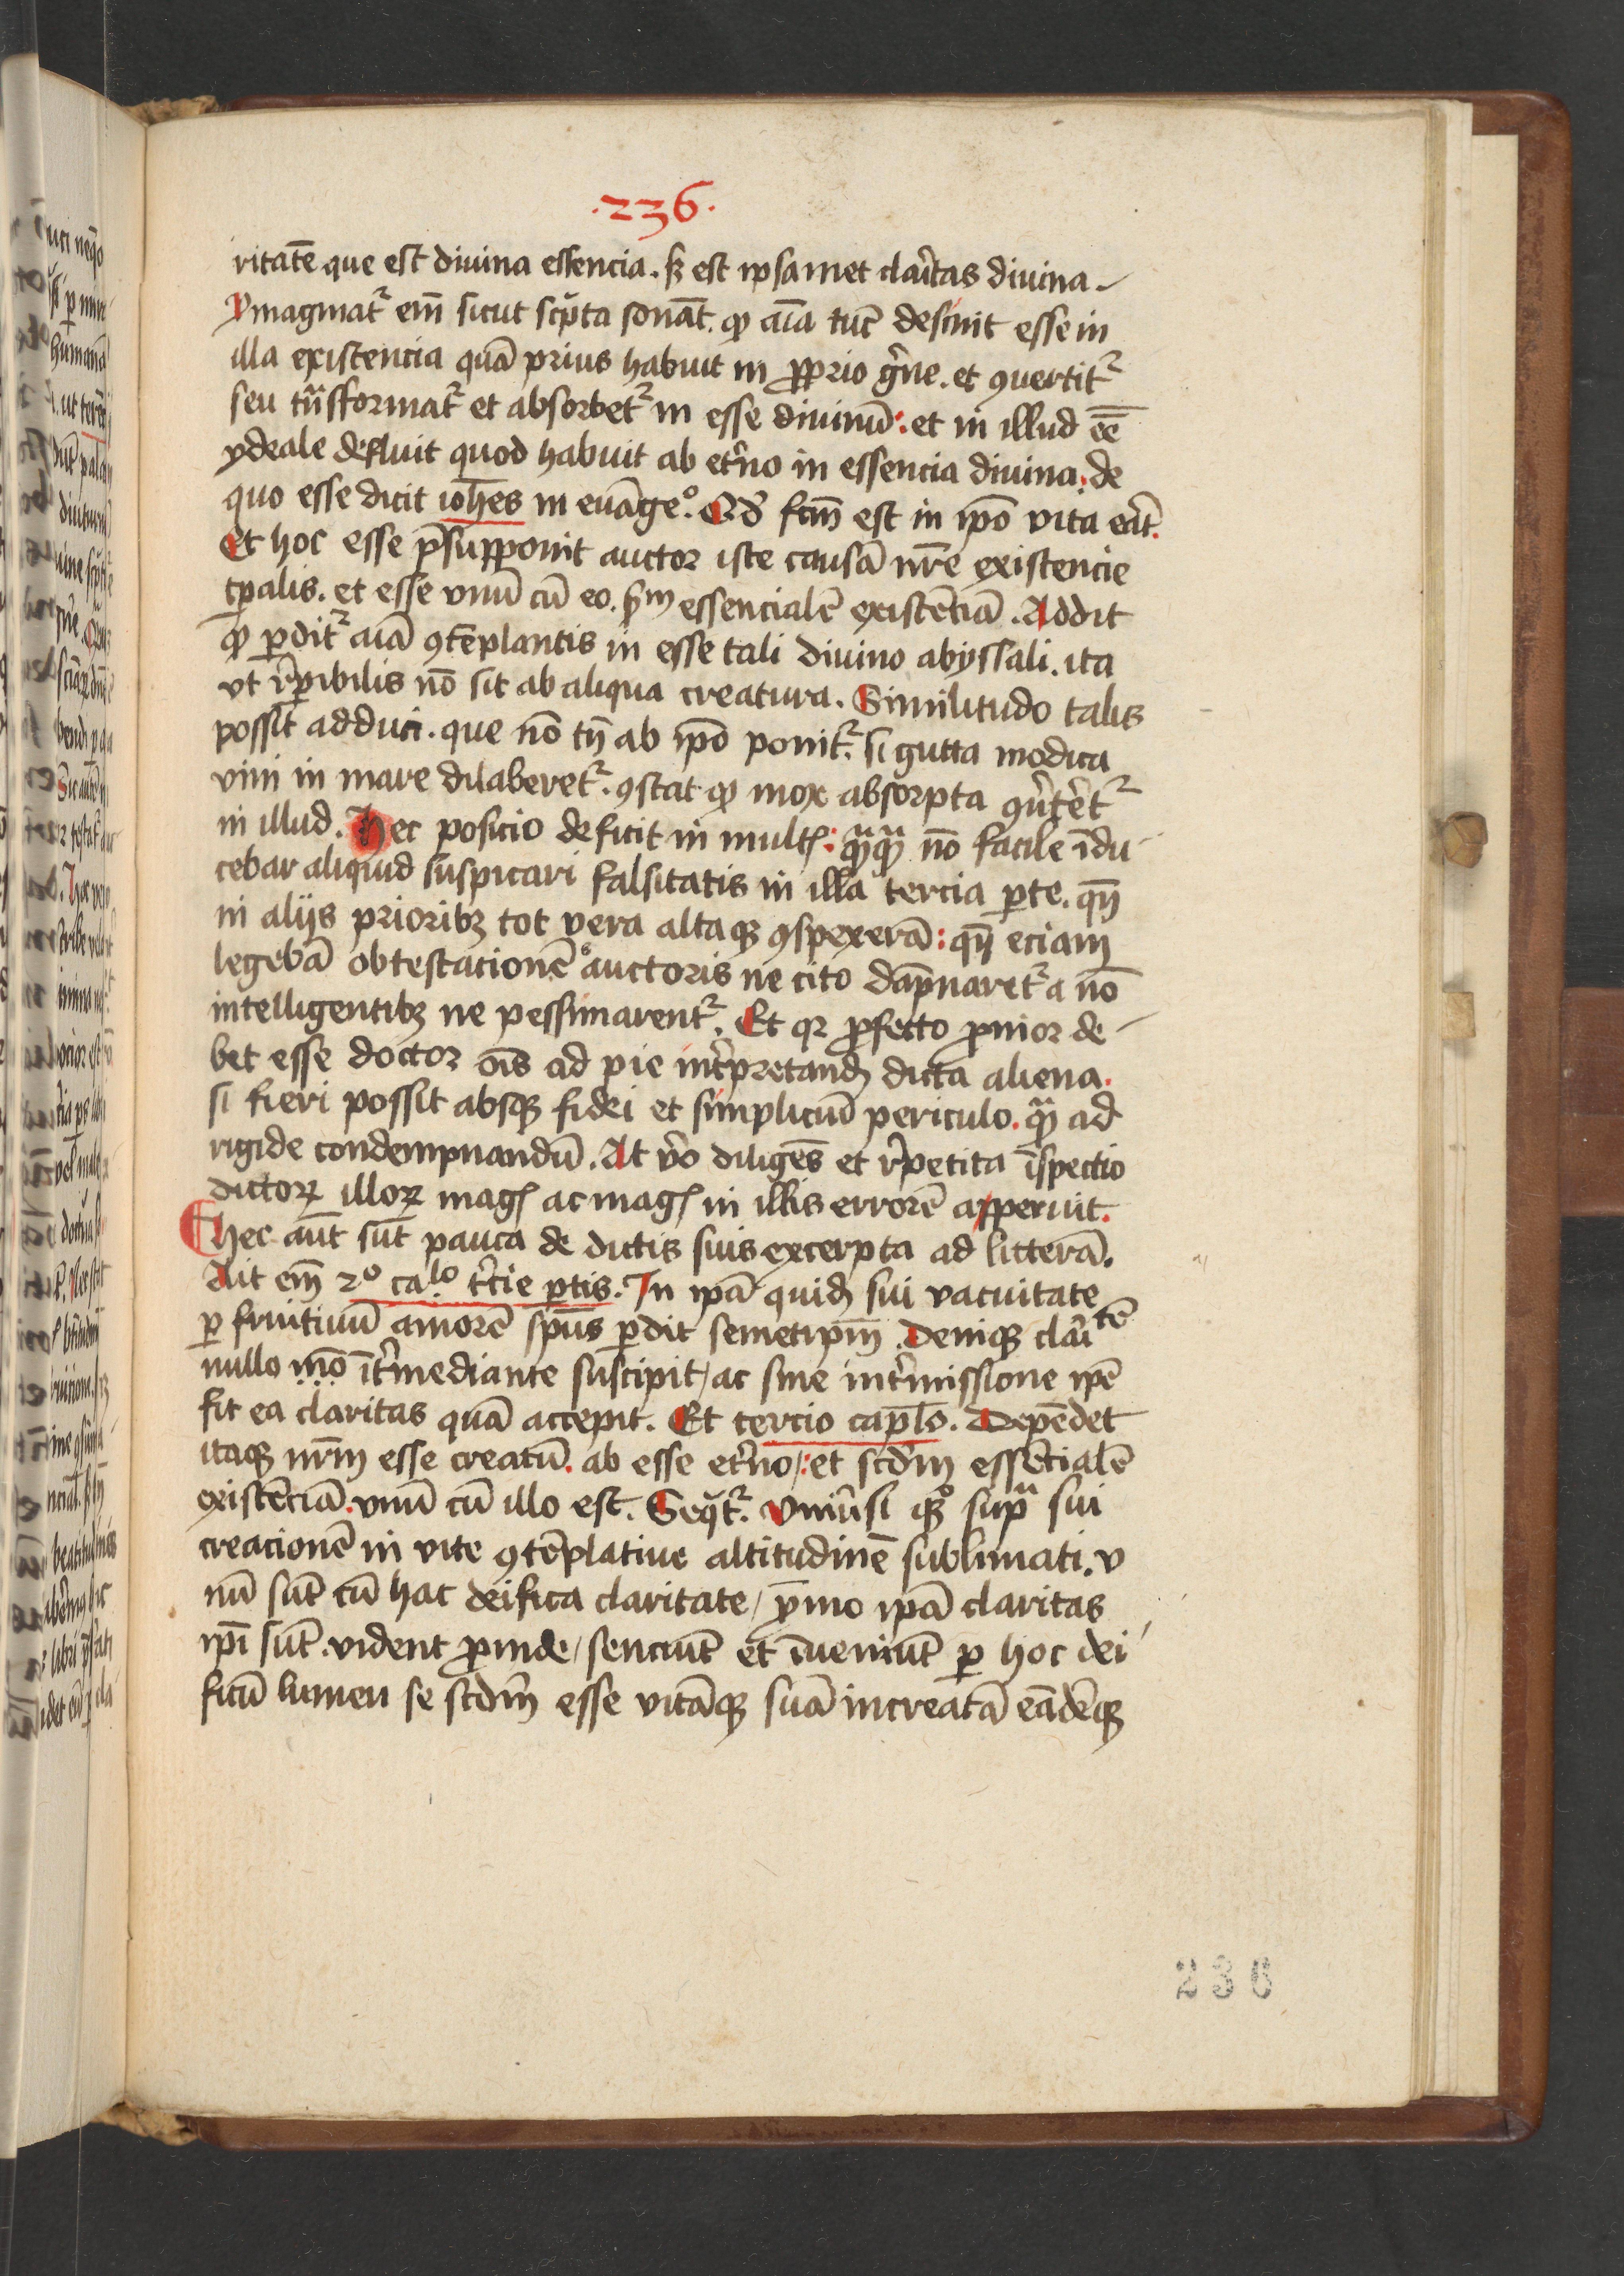 .236.
ritatē que est diuina essencia. sꝫ est ipsamet clar̄itas diuina.
Ymaginatᷣ em̄ sicut sc̓pta sonāt. ꝙ aīa tūc desinit esse in
illa existencia quā prius habuit in ꝓprio gn̄e. et ꝯuertitᷣ
seu tn̄sformatᷣ et absorbetᷣ in esse diuinū: et in illud ēē
ydeale defluit quod habuit ab et̓no in essencia diuina: de
quo esse dicit ioh̄es in euāgeº. Qd̓ fcm̄ est in ip̄o vita er̄at.
Et hoc esse p̄supponit auctor iste causā nr̄e existencie
tp̄alis. et esse vnū cū eo. s̓m essencialē existēciā. Addit
ꝙ ꝑditᷣ aīa ꝯtēplantis in esse tali diuino abyssali. ita
vt r̓ꝑibilis nō sit ab aliqua creatura. Similitudo talis
possit adduci. que nō tn̄ ab ip̄o ponitᷣ. si gutta modica
vini in mare dilaberetᷣ. ꝯstat ꝙ mox absorpta ꝯu̓tēretᷣ
in illud. Hec posicio deficit in multꝭ: qᷓꝙᷓ nō facile īdu
cebar aliquid suspicari falsitatis in illa tercia ꝑte. qn̄
in alijs prioribꝫ tot vera altaqꝫ ꝯspexerā: qn̄ eciam
legebā obtestacionē auctoris ne cito dāpnaretᷣ a nō
intelligentibꝫ ne pessimarentᷣ. Et qꝛ ꝓfecto ꝓnior de
bet esse doctor oīs ad pie int̓pretandū dicta aliena.
si fieri possit absqꝫ fidei et simpliciū periculo. qᷓ ad
rigide condempnandū. At v̓o diligēs et r̓petita īspectio
dictoꝝ illoꝝ magꝭ ac magꝭ in illis errorē apperuit.
hec aūt sūt pauca de dictis suis excerpta ad litterā.
Ait em̄ 2º caˡº. t̓cie ꝑtis. In ip̄a quidē sui vacuitate
ꝑ fruitiuū amorē spūs ꝑdit semetip̄m. Deniqꝫ clari tē
nullo mō īt̓mediante suscipit, ac sine int̓missione ip̄e
fit ea claritas quā accepit. Et tercio cap̄lo. Depēdet
itaqꝫ nr̄m esse creatū. ab esse et̓no: et scd̓m essētialē
existēciā. vnū cū illo est. Seqᷓtᷣ. Vniu̓si qꝫº supᷓ sui
creacionē in vite ꝯtēplatiue altitudinē sublimati. v
nū sūt cū hac deifica claritate, ymo ip̄a claritas
ip̄i sūt. vident ꝓinde, senciūt et īueniūt ꝑ hoc dei
ficū lumen se scd̓m esse vitāqꝫ suā increatā eādēqꝫ
236